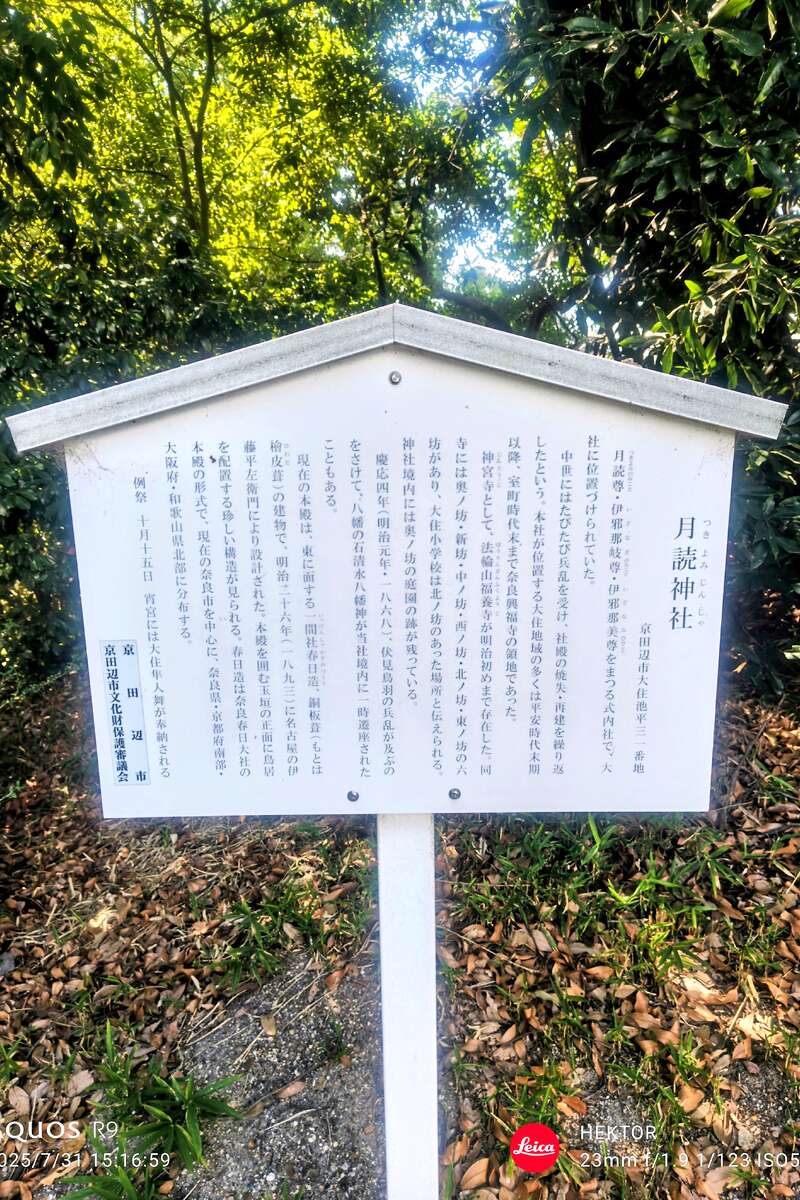 月読神社
つきよみじんじゃ
京田辺市大住池平三一番地
月読尊・伊邪那岐尊・伊邪那美尊をまつる式内社で、大
社に位置づけられていた。
中世にはたびたび兵乱を受け、社殿の焼失・再建を繰り返
したという。本社が位置する大住地域の多くは平安時代末期
以降、室町時代末まで奈良興福寺の領地であった。
神宮寺として、法輪山福養寺が明治初めまで存在した。同
寺には奥ノ坊・新坊・中ノ坊・西ノ坊・北ノ坊・東ノ坊の六
坊があり、大住小学校は北ノ坊のあった場所と伝えられる。
神社境内には奥ノ坊の庭園の跡が残っている。
慶応四年(明治元年・一八六八)、伏見鳥羽の兵乱が及ぶの
をさけて、八幡の石清水八幡神が当社境内に一時遷座された
こともある。
現在の本殿は、東に面する一間社春日造、銅板葺(もとは
檜皮葺)の建物で、明治二十六年(一八九三)に名古屋の伊
藤平左衛門により設計された。本殿を囲む玉垣の正面に鳥居
を配置する珍しい構造が見られる。春日造は奈良春日大社の
本殿の形式で、現在の奈良市を中心に、奈良県・京都府南部・
大阪府・和歌山県北部に分布する。
例祭 十月十五日 宵宮には大住隼人舞が奉納される
京田辺市
京田辺市文化財保護審議会
QUOS R9
025/7/31 15:16:59
Leica
HEKTOR
23mm f/1.9 1/123 ISO5